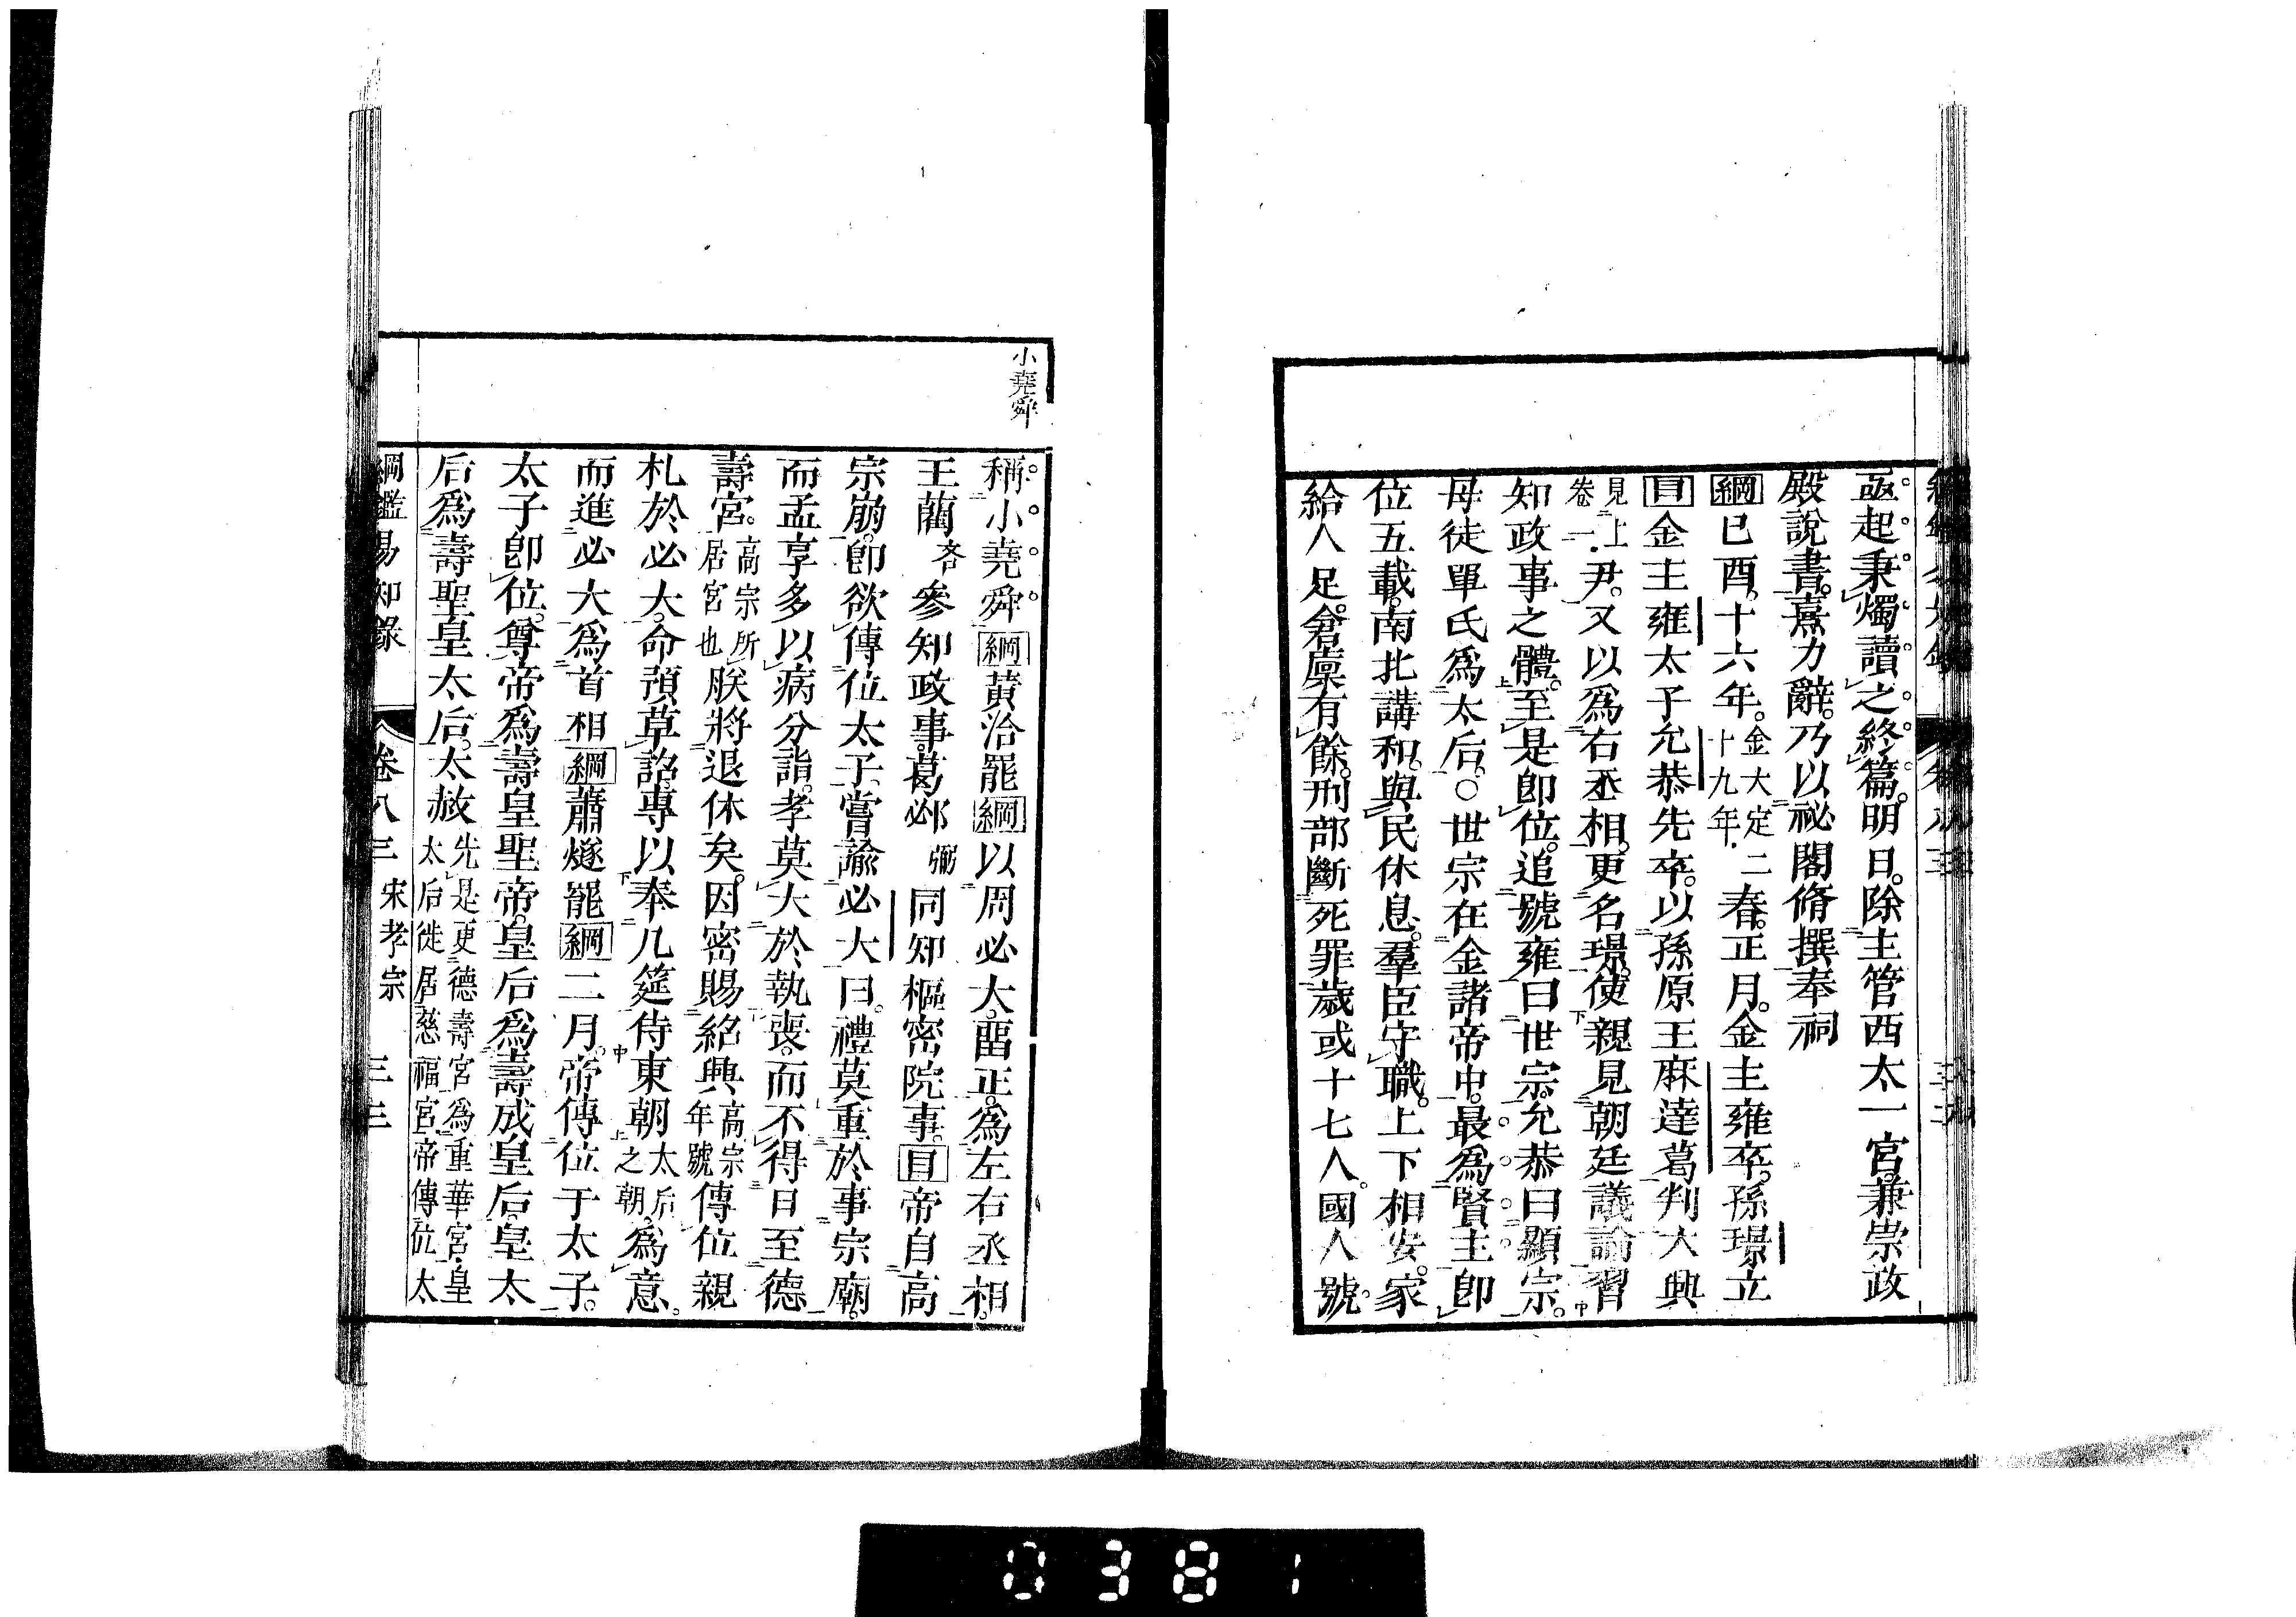 亟起秉燭讀之終篇。明日。除主管西太一宮。兼崇政
殿說書。熹力辭。乃以祕閣脩撰奉祠
綱己酉。十六年。金大定二十九年。春。正月。金主雍卒。孫璟立
目金主雍太子允恭先卒。以孫原王麻達葛判大興
見上卷一。尹。又以爲右丞相。更名璟。使親見朝廷議論習
知政事之體。至是卽位。追號雍曰世宗。允恭曰顯宗。
母徒單氏爲太后。○世宗在金諸帝中。最爲賢主卽
位五載。南北講和。與民休息。羣臣守職。上下相安。家
給人足。倉廩有餘。刑部斷死罪。歲或十七人。國人號。
小堯舜
稱小堯舜。綱黃洽罷綱以周必大。畱正。爲左右丞相。
王藺吝參知政事。葛邲弼同知樞密院事。目帝自高
宗崩。卽欲傳位太子。嘗諭必大曰。禮莫重於事宗廟。
而孟享多以病分詣。孝莫大於執喪。而不得日至德
壽宮。高宗所居宮也朕將退休矣。因密賜紹興高宗年號傳位親
札於必大。命預草詔。專以奉几筵侍東朝太后之朝。爲意。
而進必大爲首相綱蕭燧罷綱二月。帝傳位于太子。
太子卽位。尊帝爲壽皇聖帝。皇后爲壽成皇后。皇太
后爲壽聖皇太后。太赦先是更德壽宮爲重華宮。皇太后徙居慈福宮。帝傳位太
綱鑑易知錄 卷八三 宋孝宗 三三
0381